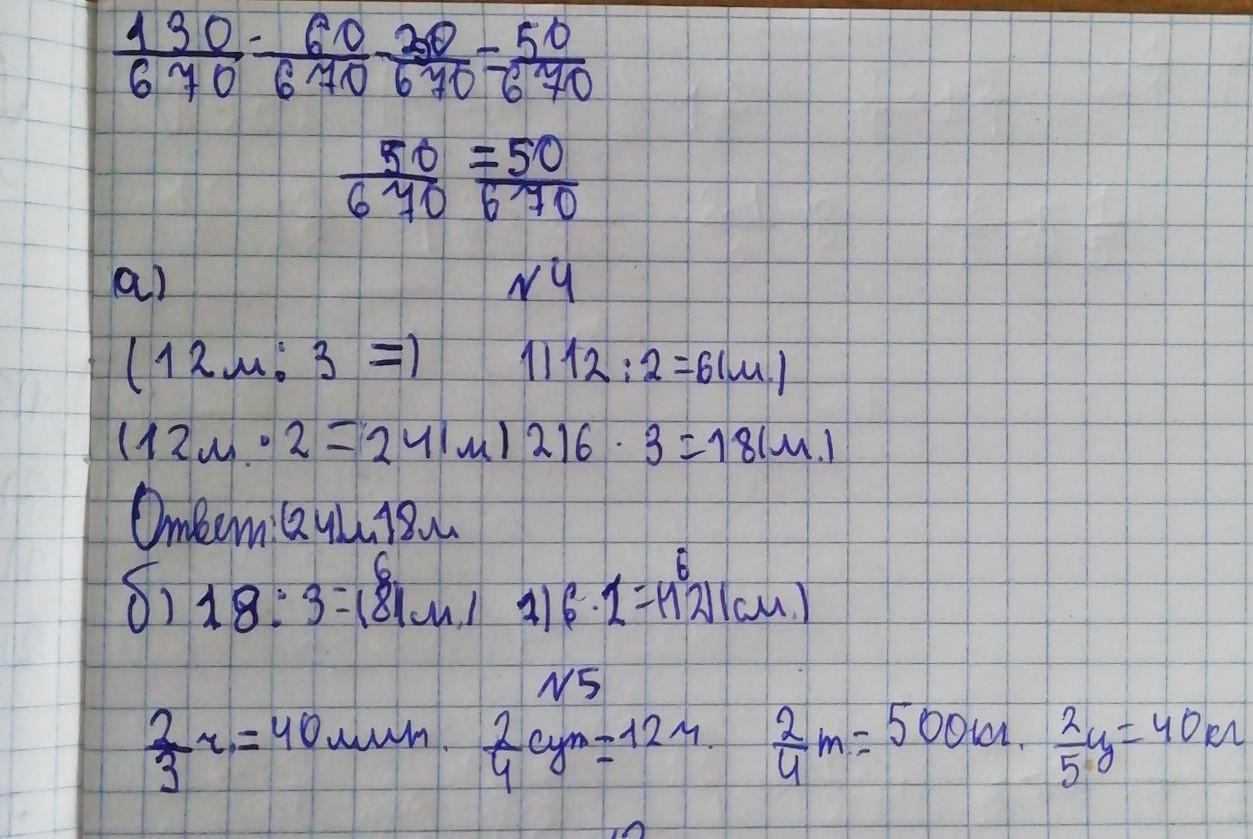 130/670 - 60/670 - 20/670 - 50/670
50/670 = 50/670
а) №4
(12м : 3 =) 1) 12 : 2 = 6(м.)
(12м. · 2 = 24(м) 2) 6 · 3 = 18(м.)
Ответ: (24)м 18м
б) 18 : 3 = (8) 6 (м.) 2) 6 · 1 = (12) 6 (см.)
№5
2/3 ч. = 40 мин. 2/4 сут = 12 ч. 2/4 т. = 500 кг. 2/5 ц = 40 кг